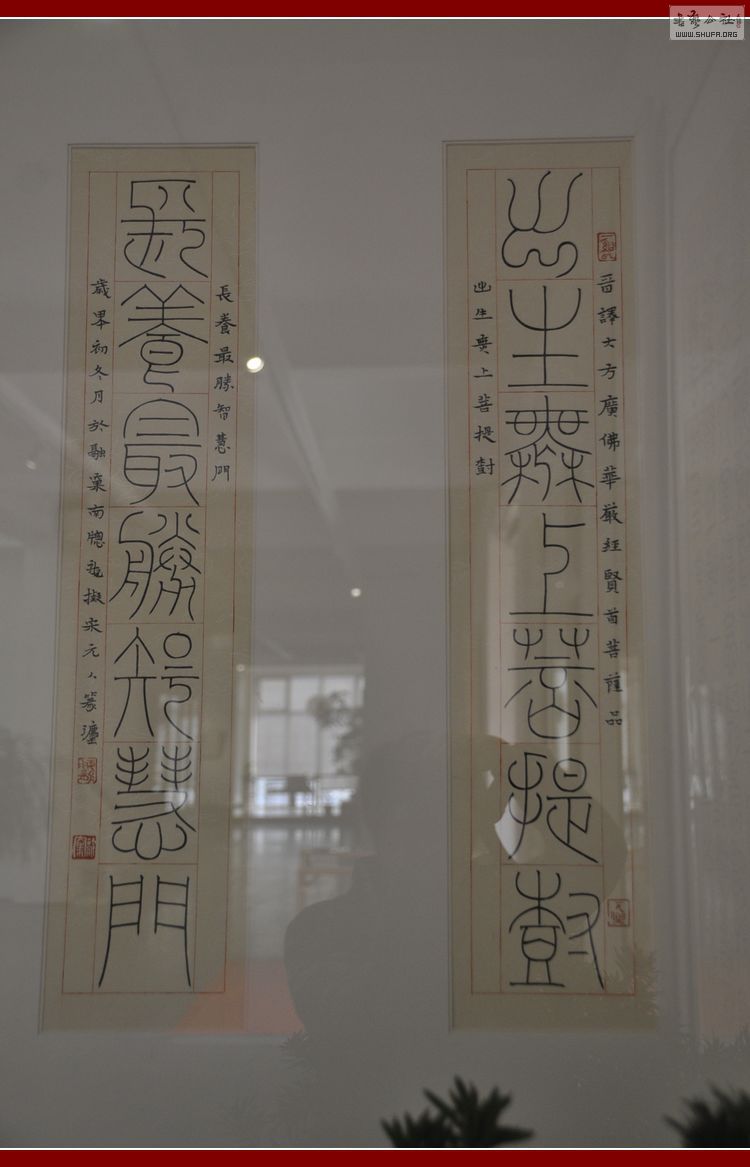 书艺公社
WWW.SHUFA.ORG
晉譯大方廣佛華嚴經賢首菩薩品
出生無上菩提尌
出生無上菩提尌
長養最勝智慧門
長養最勝智慧門
初冬月於融南牕擬宋元人篆灋